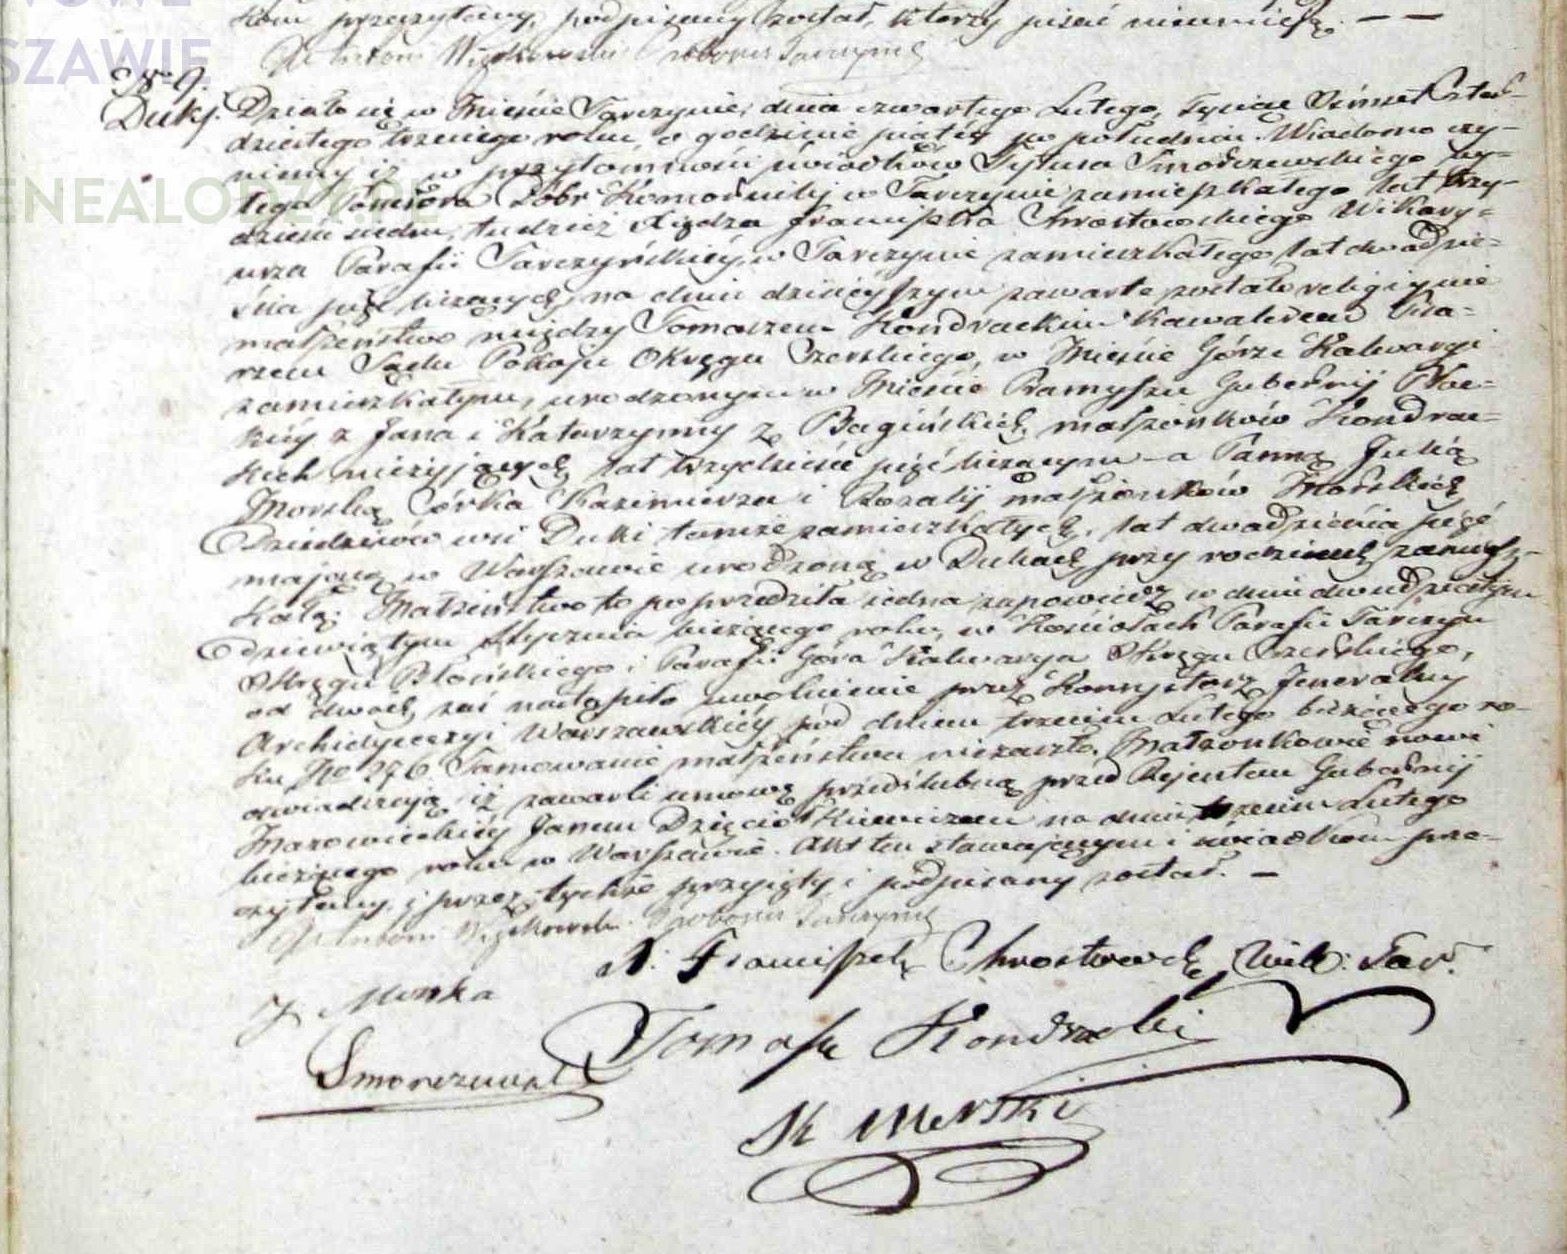 NOWE
SZAWIE
GENEALODZY.PL
kom przeczytany, podpisany został, którzy pisać nieumieją. — —
No 9.
Duki. Działo się w Mieście Tarczynie, dnia czwartego Lutego, Tysiąc Ośmset Czter-
dziestego trzeciego roku, o godzinie piątey po południu. Wiadomo czy-
niemy iż w przytomności świadków Tytusa Smorczewskiego by-
łego Dóbr Komorniki w Tarczynie zamieszkałego lat trzy-
dzieści siedm, tudzież Xiędza Franciszka Chrostowskiego Wikary-
usza Parafii Tarczyńskiey, w Tarczynie zamieszkałego lat dwadzie-
ścia pięć liczących, na dniu dzisiejszym zawarte zostało religijnie
małżeństwo między Tomaszem Kondrackim Kawalerem Pisa-
rzem Sądu Pokoju Okręgu Czerskiego, w Mieście Górze Kalwaryi
zamieszkałym, urodzonym w Mieście Gubernij Płoc-
kiéy z Jana i Katarzynny z Bagińskich małżonków Kondrac-
kich nieżyjących, lat trzydzieści pięć liczącym — a Panną Julią
Morską Córką Kazimierza i Rozalij małżonków Morskich
Dziedziców wsi Duki tamże zamieszkałych, lat dwadzieścia pięć
mającą w Warszawie urodzoną w Dukach przy rodzicach zamiesz-
kałą. Małżeństwo to poprzedziła jedna zapowiedź w dniu dwudziestym
dziewiątym Stycznia bieżącego roku, w Kościołach Parafii Tarczyn
Okręgu Błońskiego i Parafii Góra Kalwarya Okręgu Czerskiego,
od dwóch zaś nastąpiło uwolnienie przez Konsystorz Jeneralny
Archidyecezyi Warszawskiéy pod dniem trzecim Lutego bieżącego ro-
ku No 276 Tamowanie małżeństwa niezaszło. Małżonkowie nowi
oświadczają iż zawarli umowę przedślubną przed Rejentem Gubernij
Mazowieckiéy Janem na dniu trzecim Lutego
bieżącego roku w Warszawie. Akt ten stawającym i świadkom prze-
czytany, i przez tychże przyjęty i podpisany został. —
X. Franciszek Chrostowski Wik: Tar.
J. Morska
Tomasz Kondracki
Smorczewski
K Morski